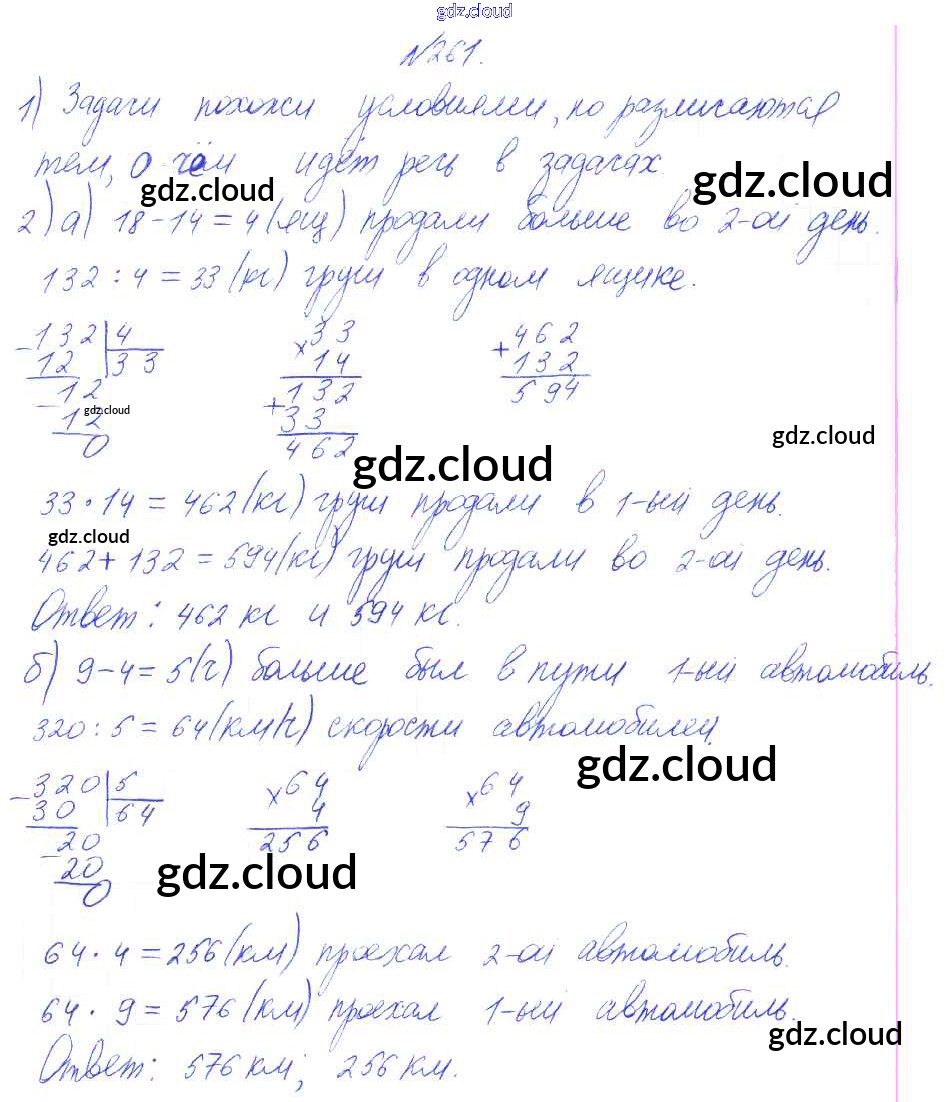 gdz.cloud
№261.
1) Задачи похожи условиями, но различаются
тем, о чём идёт речь в задачах.
gdz.cloud gdz.cloud
2) а) 18-14=4(ящ) продали больше во 2-ой день.
132:4=33(кг) груш в одном ящике.
-132|4 ×33 +462
12 |33 14 132
-12 132 594
12 gdz.cloud +33
0 462 gdz.cloud
gdz.cloud
33·14=462(кг) груш продали в 1-ый день.
gdz.cloud
462+132=594(кг) груш продали во 2-ой день.
Ответ: 462 кг и 594 кг.
б) 9-4=5(ч) больше был в пути 1-ый автомобиль.
320:5=64(км/ч) скорости автомобилей.
gdz.cloud
-320|5 ×64 ×64
30 |64 4 9
-20 256 576
20 gdz.cloud
0
64·4=256(км) проехал 2-ой автомобиль.
64·9=576(км) проехал 1-ый автомобиль.
gdz.cloud
Ответ: 576 км; 256 км.